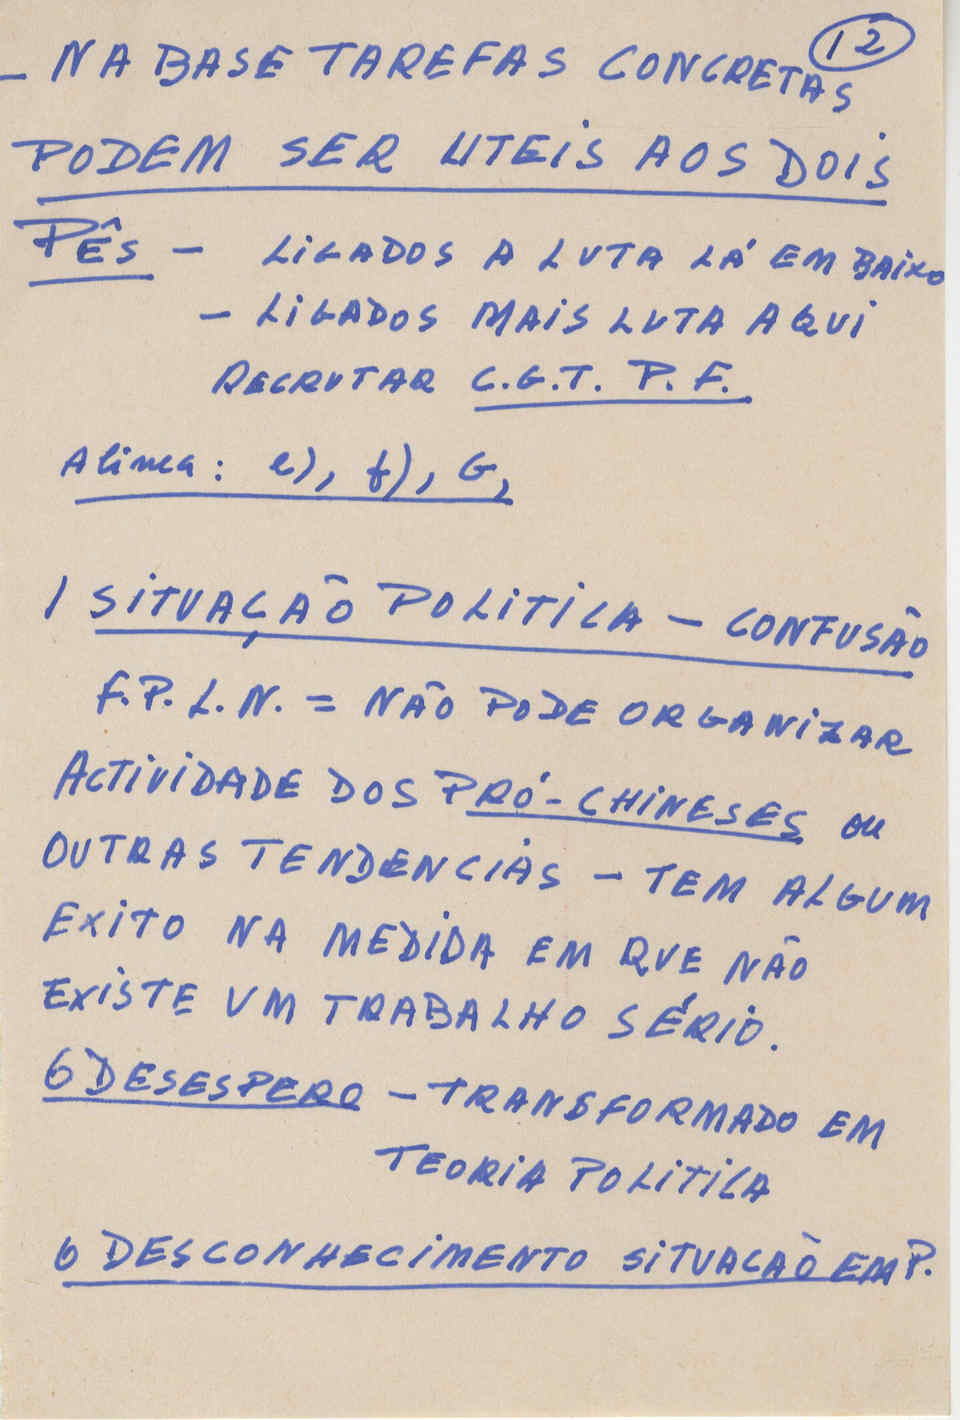 12
- NA BASE TAREFAS CONCRETAS
PODEM SER UTEIS AOS DOIS
PÊS - LIGADOS A LUTA LÁ EM BAIXO
- LIGADOS MAIS LUTA AQUI
RECRUTAR C.G.T. P.F.
Alinea: e), f), G,
1 SITUAÇÃO POLITICA - CONFUSÃO
F.P.L.N. = NÃO PODE ORGANIZAR
ACTIVIDADE DOS PRÓ-CHINESES ou
OUTRAS TENDENCIAS - TEM ALGUM
EXITO NA MEDIDA EM QUE NÃO
EXISTE UM TRABALHO SÉRIO.
6 DESESPERO - TRANSFORMADO EM
TEORIA POLITICA
6 DESCONHECIMENTO SITUACÃO EM P.